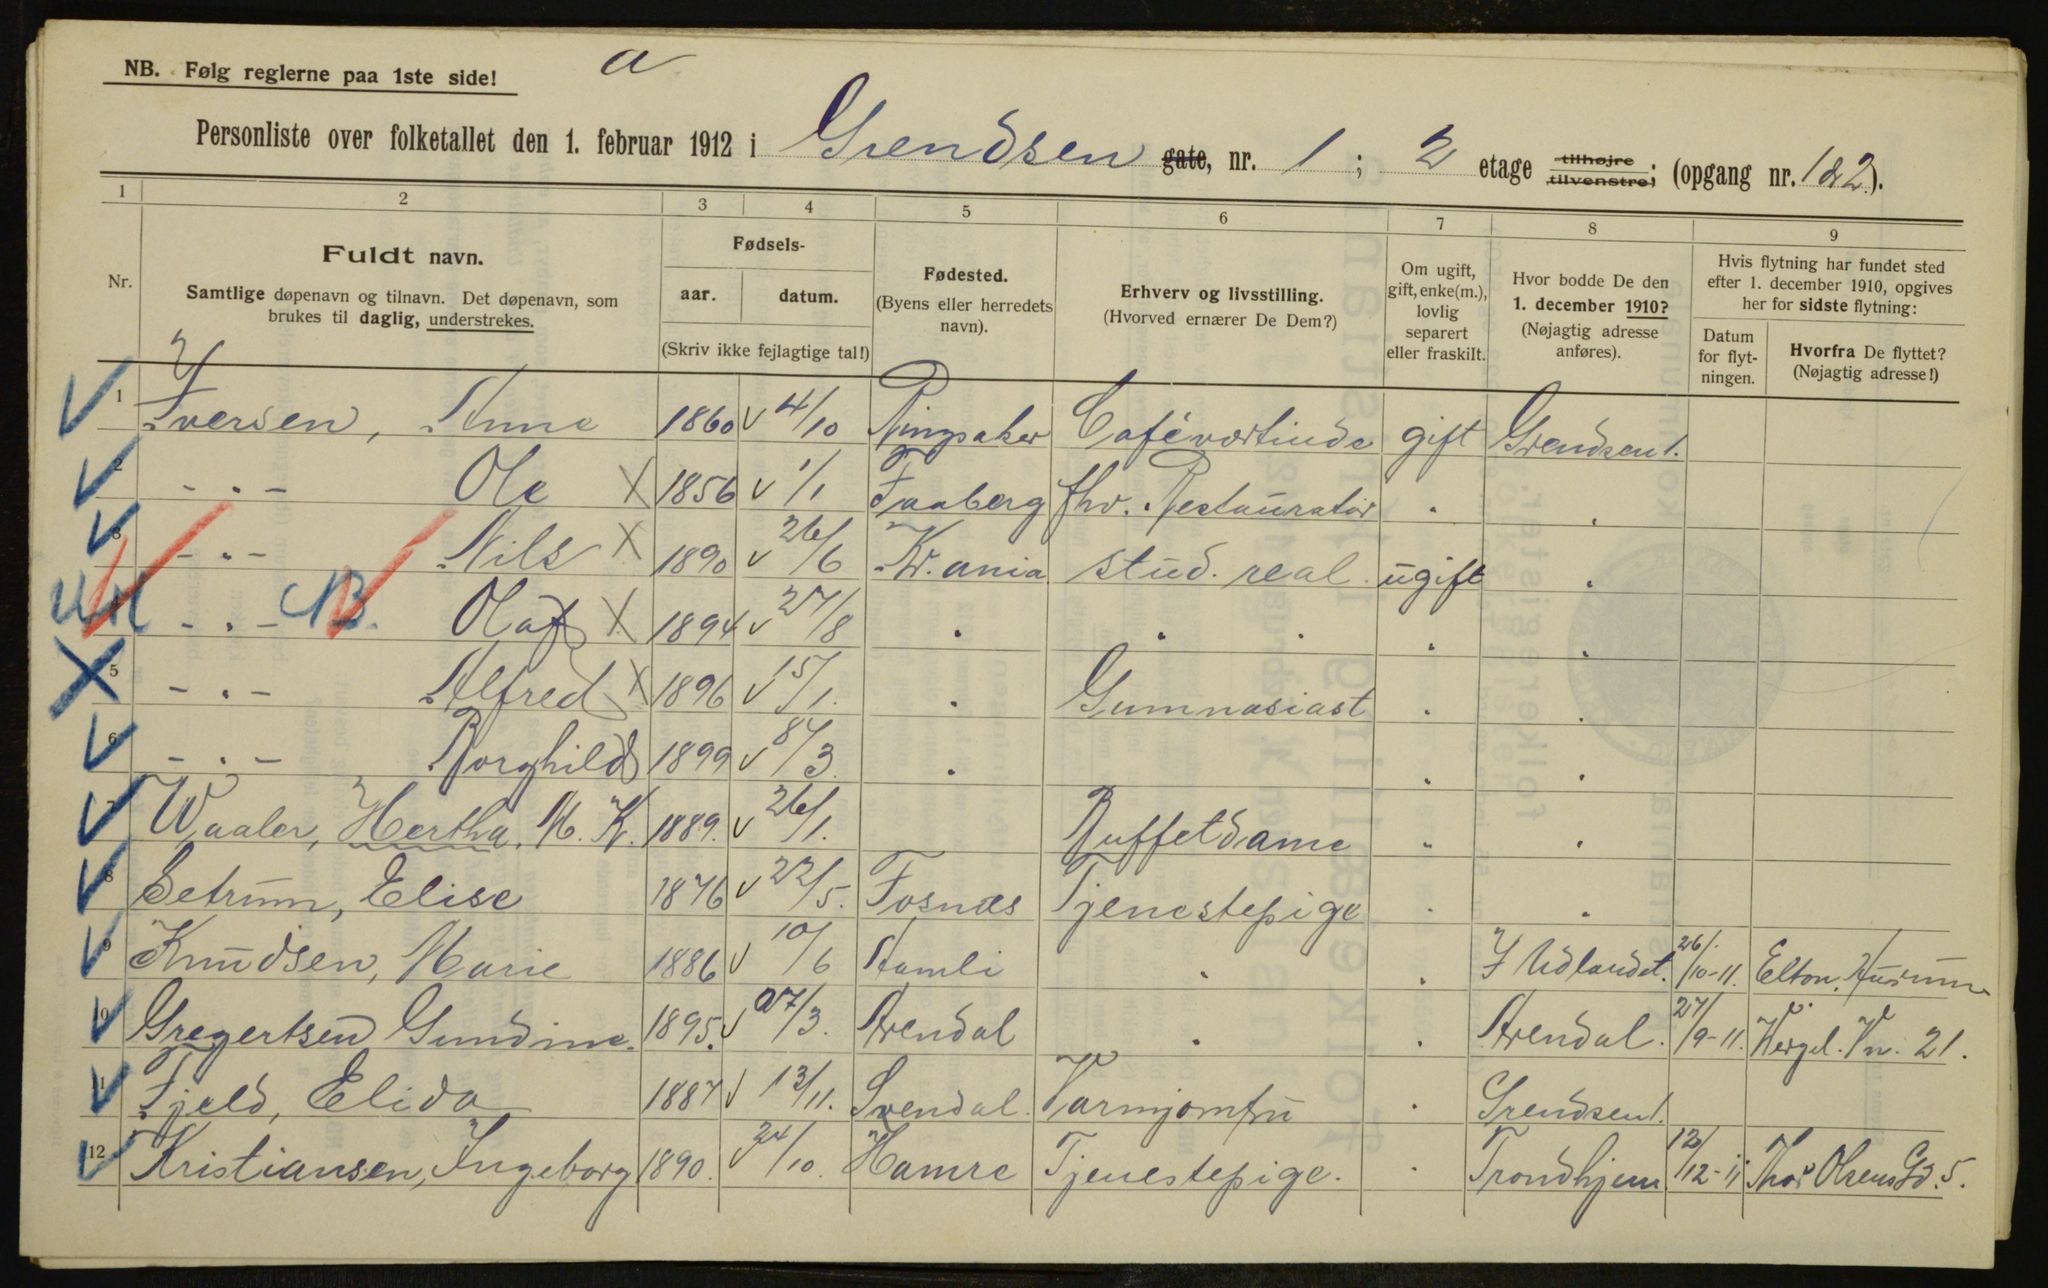 NB. Følg reglerne paa 1ste side!
a
Personliste over folketallet den 1. februar 1912 i Grendsen gate, nr. 1 ; 2 etage tilhøjre tilvenstre; (opgang nr. 1&2).
1 2 3 4 5 6 7 8 9
Nr.
Fuldt navn.
Samtlige døpenavn og tilnavn. Det døpenavn, som
brukes til daglig, understrekes.
Fødsels-
aar. datum.
(Skriv ikke fejlagtige tal!)
Fødested.
(Byens eller herredets
navn).
Erhverv og livsstilling.
(Hvorved ernærer De Dem?)
Om ugift,
gift, enke(m.),
lovlig
separert
eller fraskilt.
Hvor bodde De den
1. december 1910?
(Nøjagtig adresse
anføres).
Hvis flytning har fundet sted
efter 1. december 1910, opgives
her for sidste flytning:
Datum
for flyt-
ningen.
Hvorfra De flyttet?
(Nøjagtig adresse!)
1 Iversen, Anne 1860 4/10 Ringsaker Caféværtinde gift Grendsen 1.
2 - " - Ole X 1856 1/1 Faaberg fhv. Restauratør " "
3 - " - Nils X 1890 26/6 Kr.ania stud. real. ugift "
- " - NB. Olaf X 1894 27/8 " " " " "
5 - " - Alfred X 1896 15/1. " Gumnasiast " "
6 - " - Borghild 1899 /3. " " "
7 Waaler, Hertha. M. K. 1889. 26/1. Buffetdame " "
8 Setrum, Elise 1876 22/5. Fosnæs Tjenestepige " "
9 Knudsen, Marie 1886 10/6 Aamli " " I Udlandet. 26/10-11. Elton, Hurum
10 Gregertsen Gundine. 1895. 27/3. Arendal " " Arendal. 27/9-11. Wergel. Vn. 21.
11 Fjeld, Elida 1887 13/11. Svendal. Varmjomfru " Grendsen 1.
12 Kristiansen, Ingeborg 1890. 24/10. Hamre Tjenestepige. " Trondhjem. 12/12-11 Thor Olsens Gd. 5.